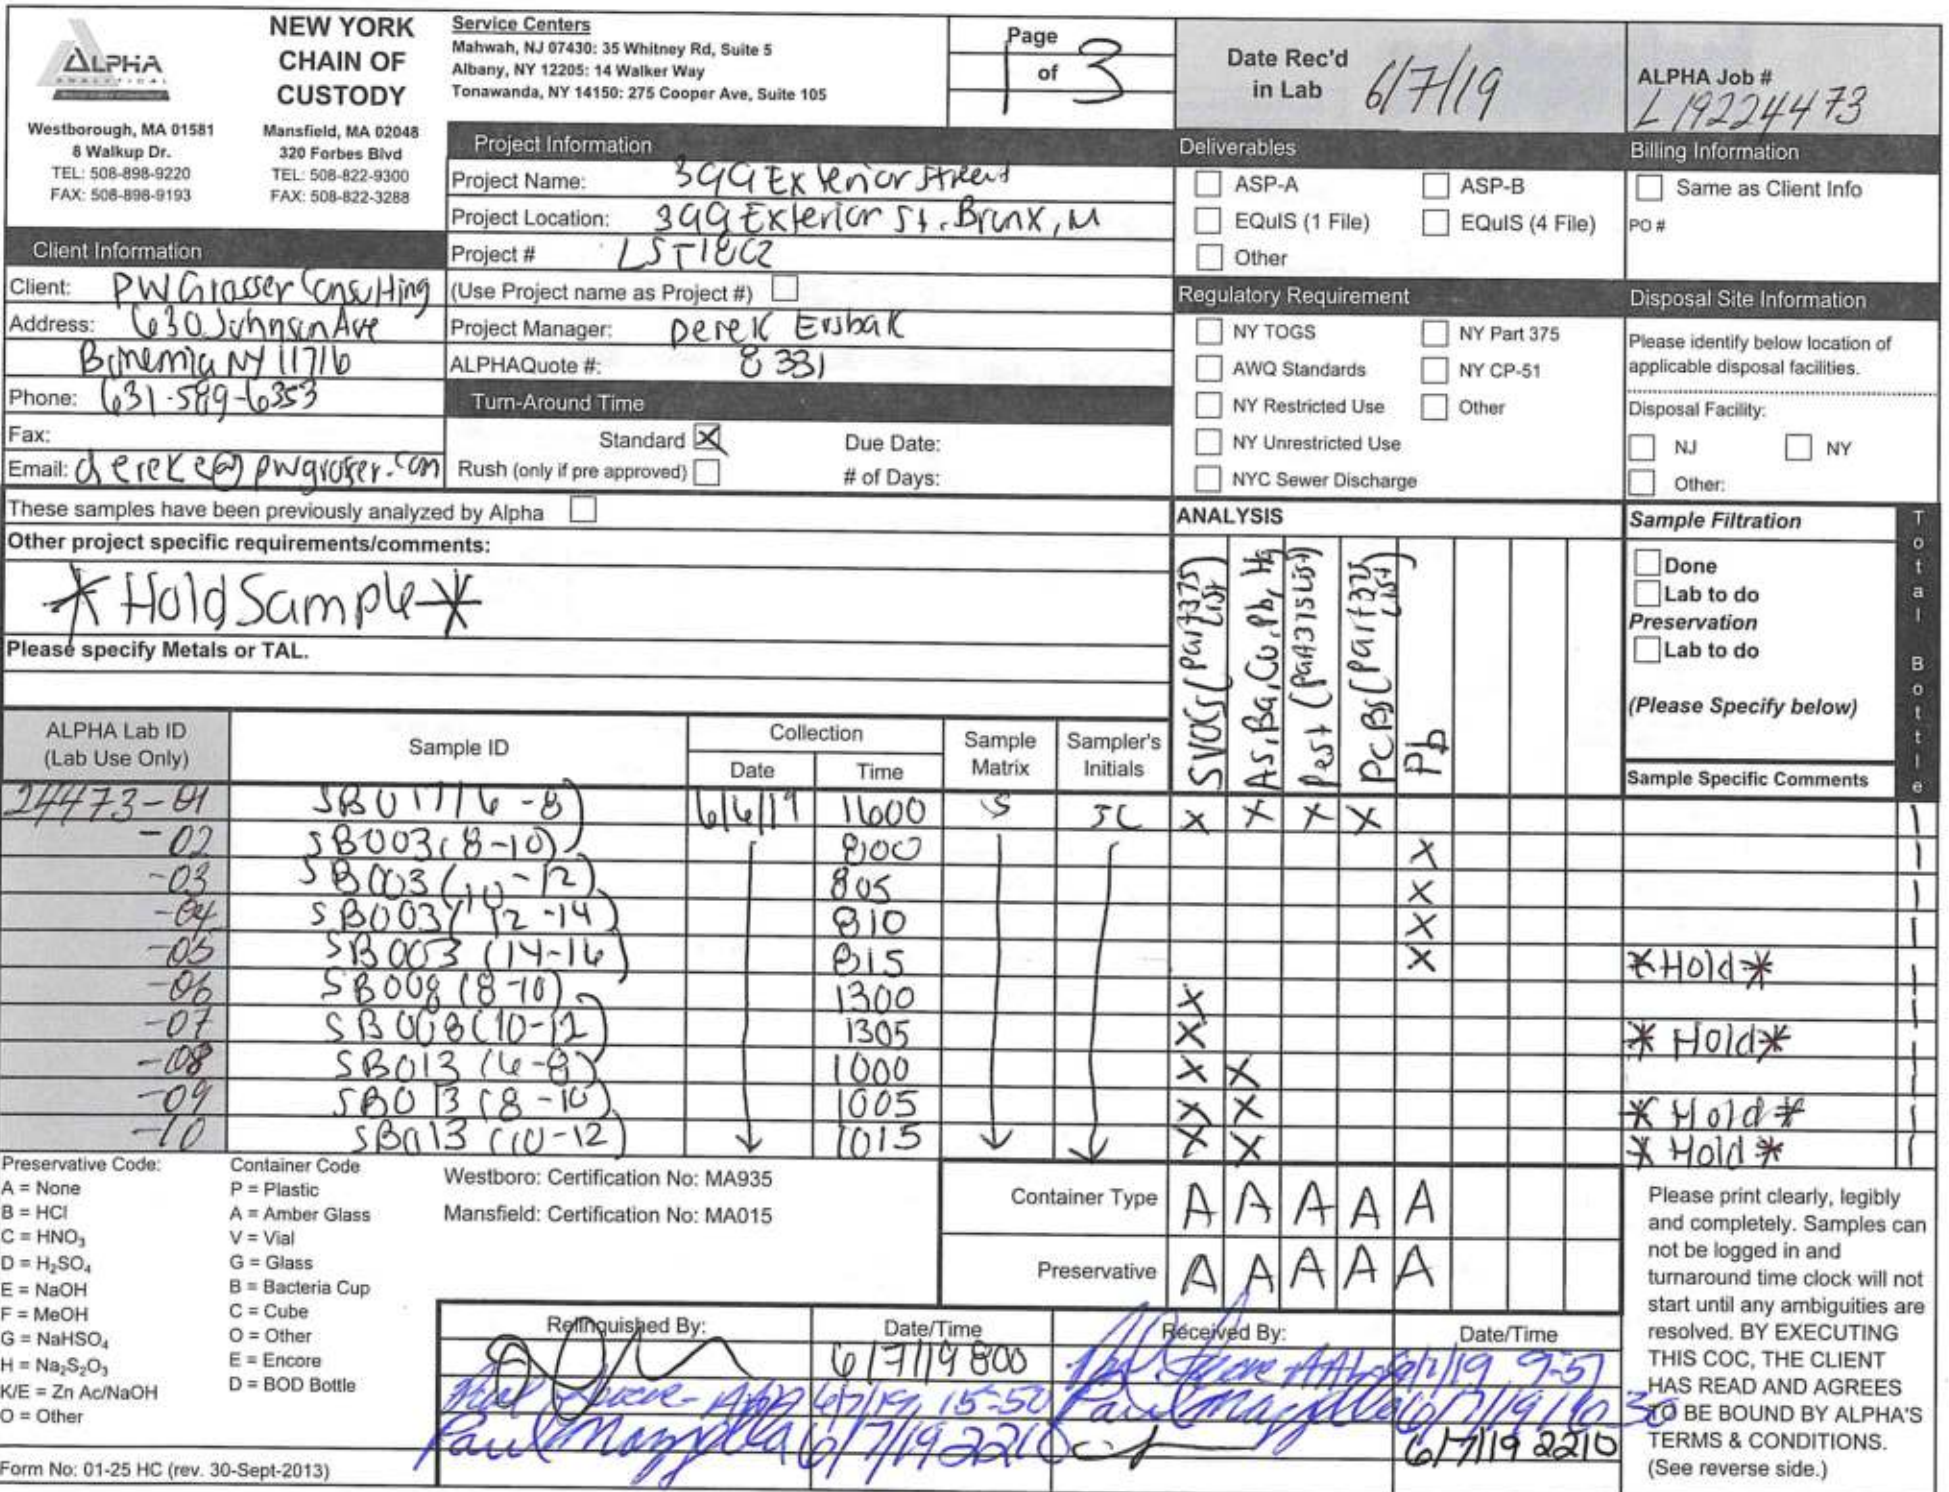 ALPHA
ANALYTICAL
NEW YORK
CHAIN OF
CUSTODY
Westborough, MA 01581
8 Walkup Dr.
TEL: 508-898-9220
FAX: 508-898-9193
Mansfield, MA 02048
320 Forbes Blvd
TEL: 508-822-9300
FAX: 508-822-3288
Service Centers
Mahwah, NJ 07430: 35 Whitney Rd, Suite 5
Albany, NY 12205: 14 Walker Way
Tonawanda, NY 14150: 275 Cooper Ave, Suite 105
Page
1 of 3
Date Rec'd
in Lab 6/7/19
ALPHA Job #
L19224473
Project Information
Project Name: 399 Exterior Street
Project Location: 399 Exterior St. Bronx,
Project # LST1802
(Use Project name as Project #)
Project Manager: Derek Ersbak
ALPHAQuote #: 8331
Turn-Around Time
Standard X Due Date:
Rush (only if pre approved) # of Days:
Client Information
Client: PWGrosser Consulting
Address: 630 Johnson Ave
Bohemia NY 11716
Phone: 631-589-6353
Fax:
Email: dereke@pwgrosser.com
Deliverables
ASP-A ASP-B
EQuIS (1 File) EQuIS (4 File)
Other
Regulatory Requirement
NY TOGS NY Part 375
AWQ Standards NY CP-51
NY Restricted Use Other
NY Unrestricted Use
NYC Sewer Discharge
Billing Information
Same as Client Info
PO #
Disposal Site Information
Please identify below location of
applicable disposal facilities.
Disposal Facility:
NJ NY
Other:
These samples have been previously analyzed by Alpha
Other project specific requirements/comments:
* Hold Sample *
Please specify Metals or TAL.
ANALYSIS
SVOCs (Part 375 List)
As, Ba, Cu, Pb, Hg
Pest (Part 375 List)
PCBs (Part 375 List)
Pb
Sample Filtration
Done
Lab to do
Preservation
Lab to do
(Please Specify below)
Sample Specific Comments
Total Bottle
ALPHA Lab ID
(Lab Use Only)
Sample ID
Collection
Date Time
Sample
Matrix
Sampler's
Initials
24473-01 SB017(6-8) 6/6/19 1600 S JC X X X X 1
-02 SB003(8-10) 800 X 1
-03 SB003(10-12) 805 X 1
-04 SB003(12-14) 810 X 1
-05 SB003 (14-16) 815 X *Hold* 1
-06 SB008(8-10) 1300 X 1
-07 SB008(10-12) 1305 X * Hold* 1
-08 SB013(6-8) 1000 X X 1
-09 SB013(8-10) 1005 X X * Hold * 1
-10 SB013(10-12) 1015 X X * Hold * 1
Preservative Code:
A = None
B = HCl
C = HNO3
D = H2SO4
E = NaOH
F = MeOH
G = NaHSO4
H = Na2S2O3
K/E = Zn Ac/NaOH
O = Other
Container Code
P = Plastic
A = Amber Glass
V = Vial
G = Glass
B = Bacteria Cup
C = Cube
O = Other
E = Encore
D = BOD Bottle
Westboro: Certification No: MA935
Mansfield: Certification No: MA015
Container Type A A A A A
Preservative A A A A A
Relinquished By: Date/Time Received By: Date/Time
6/7/19 800 6/7/19 9-51
6/7/19, 15-50 Paul Mazzella 6/7/19 1630
Paul Mazzella 6/7/19 2210 6/7/19 2210
Please print clearly, legibly
and completely. Samples can
not be logged in and
turnaround time clock will not
start until any ambiguities are
resolved. BY EXECUTING
THIS COC, THE CLIENT
HAS READ AND AGREES
TO BE BOUND BY ALPHA'S
TERMS & CONDITIONS.
(See reverse side.)
Form No: 01-25 HC (rev. 30-Sept-2013)